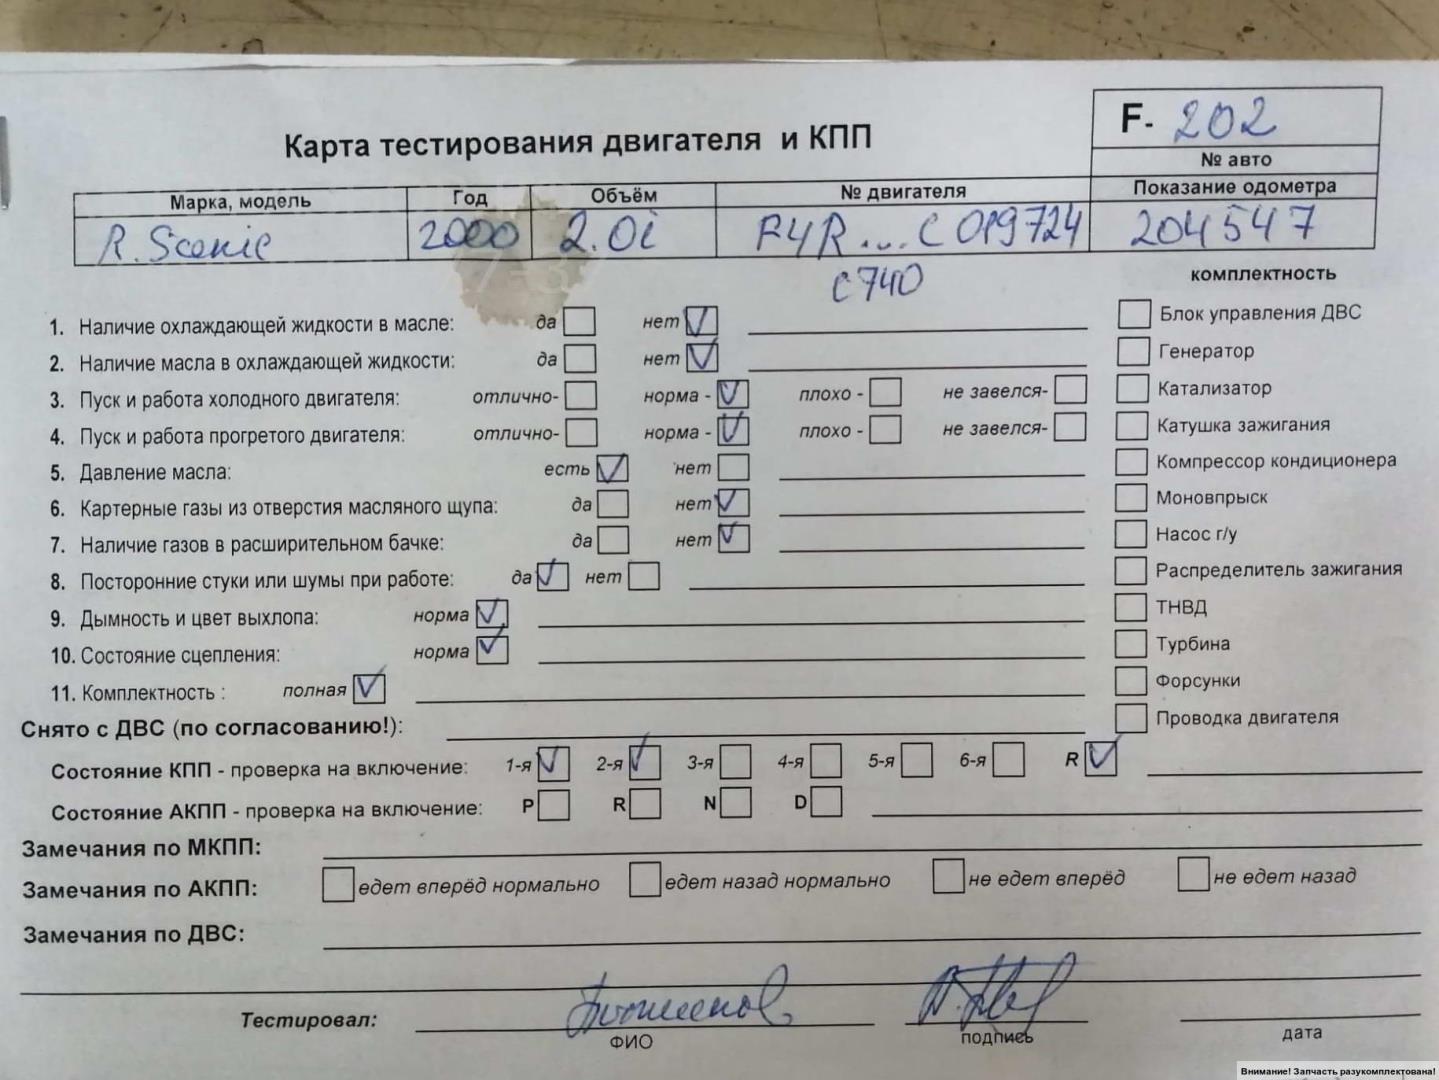 F- 202
Карта тестирования двигателя и КПП
№ авто
Марка, модель Год Объём № двигателя Показание одометра
R. Scenic 2000 2.0i F4R...C019724 204547
C740
комплектность
1. Наличие охлаждающей жидкости в масле: да нет Блок управления ДВС
2. Наличие масла в охлаждающей жидкости: да нет Генератор
3. Пуск и работа холодного двигателя: отлично- норма - плохо - не завелся- Катализатор
4. Пуск и работа прогретого двигателя: отлично- норма - плохо - не завелся- Катушка зажигания
5. Давление масла: есть нет Компрессор кондиционера
6. Картерные газы из отверстия масляного щупа: да нет Моновпрыск
7. Наличие газов в расширительном бачке: да нет Насос г/у
8. Посторонние стуки или шумы при работе: да нет Распределитель зажигания
9. Дымность и цвет выхлопа: норма ТНВД
10. Состояние сцепления: норма Турбина
11. Комплектность : полная Форсунки
Снято с ДВС (по согласованию!): Проводка двигателя
Состояние КПП - проверка на включение: 1-я 2-я 3-я 4-я 5-я 6-я R
Состояние АКПП - проверка на включение: P R N D
Замечания по МКПП:
Замечания по АКПП: едет вперёд нормально едет назад нормально не едет вперёд не едет назад
Замечания по ДВС:
Тестировал:
ФИО подпись дата
Внимание! Запчасть разукомплектована!